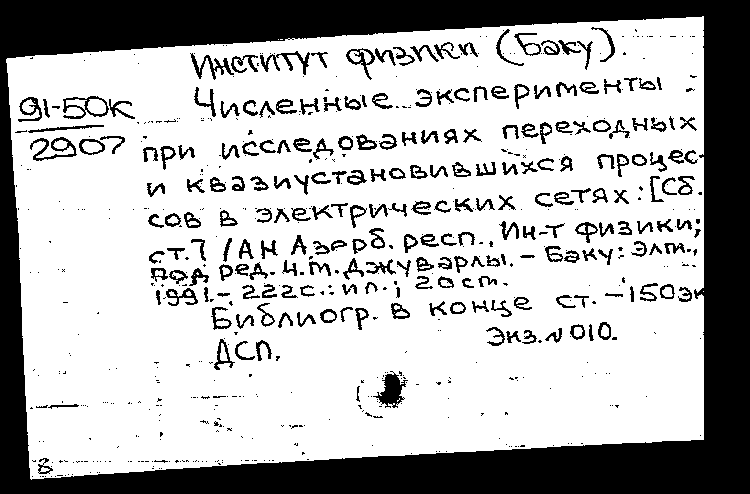 Институт физики (Баку).
91-50К
2907
Численные эксперименты
при исследованиях переходных
и квазиустановившихся процес-
сов в электрических сетях: [Сб.
ст.] / АН Азерб. респ., Ин-т физики;
под ред. Ч.М. Джуварлы. - Баку: Элм.,
1991. - 222с.: ил.; 20 см.
Библиогр. в конце ст. - 150 эк
ДСП.
Экз. № 010.
8